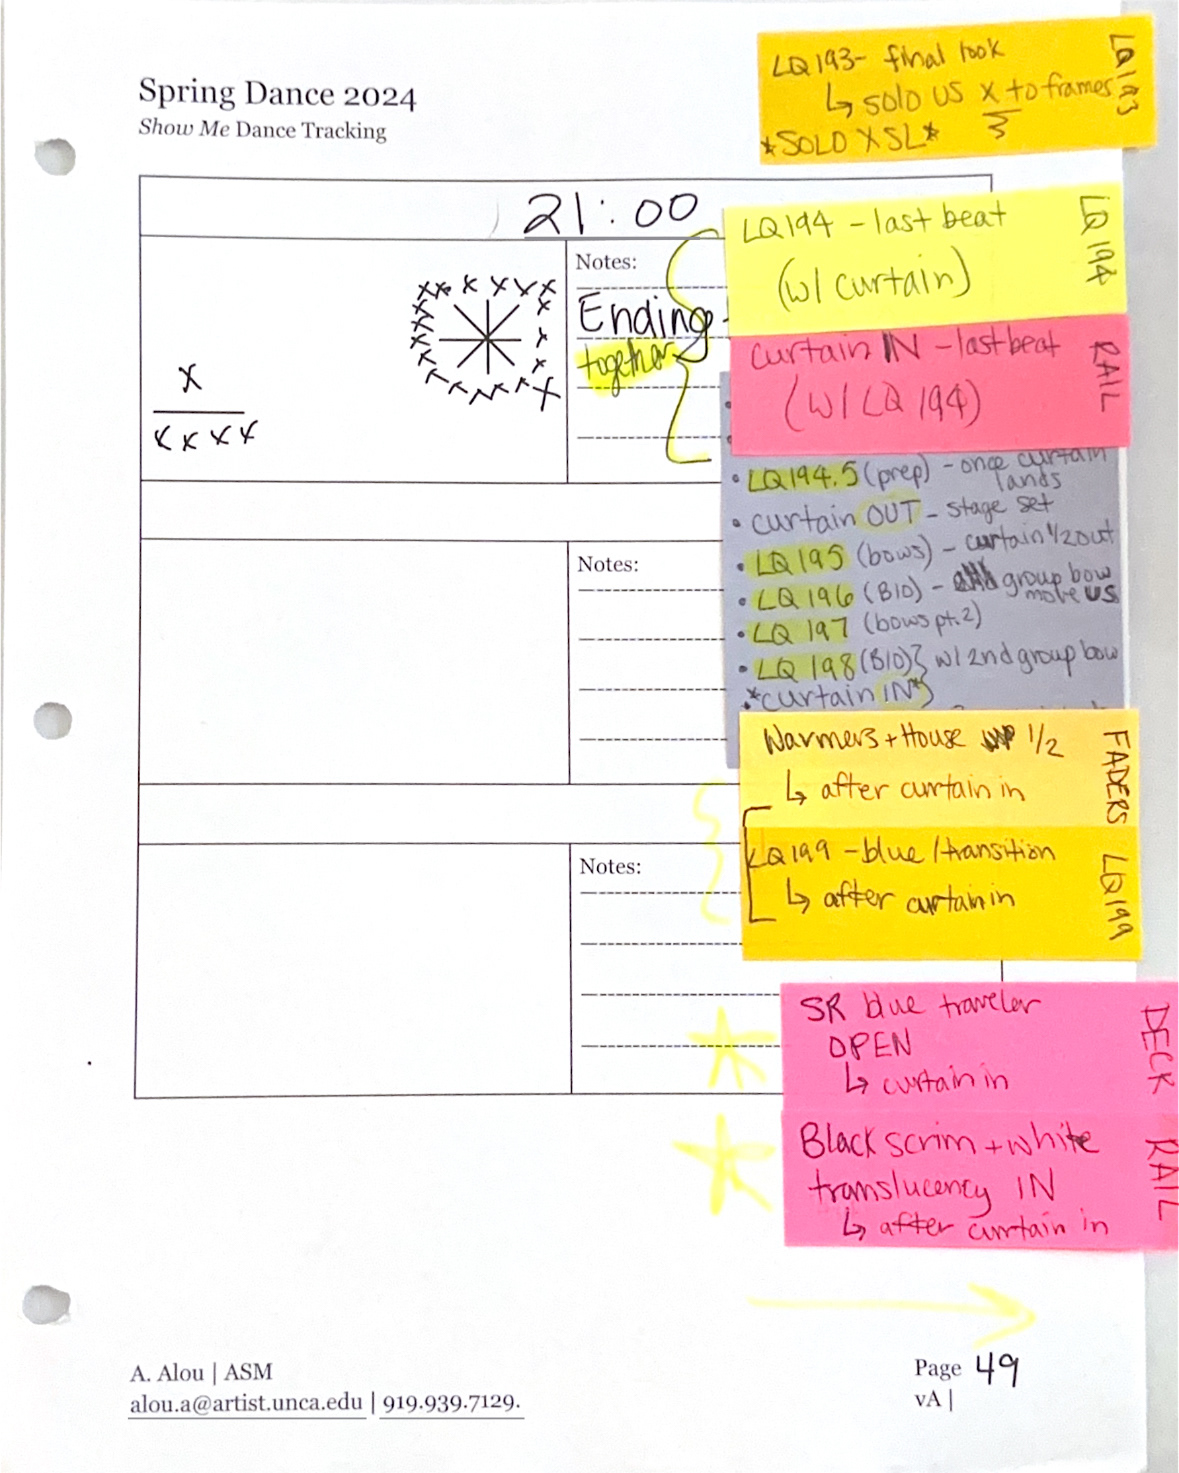 Spring Dance 2024
Show Me Dance Tracking
LQ193- final look
↳ solo US X to frames
*SOLO X SL*
LQ193
21:00
Notes:
Ending
together
LQ194 - last beat
(w/ curtain)
LQ194
curtain IN - last beat
(w/ LQ 194)
RAIL
x x x x x x x
x x
x x
x x
x x
x x x x x x
x
x x x x
• LQ194.5 (prep) - once curtain
lands
• curtain OUT - stage set
• LQ195 (bows) - curtain 1/2 out
• LQ196 (B/O) - group bow
move US
• LQ 197 (bows pt. 2)
• LQ 198 (B/O) } w/ 2nd group bow
*curtain IN*
Notes:
Warmers + House 1/2
↳ after curtain in
FADERS
LQ199 - blue/transition
↳ after curtain in
LQ199
Notes:
SR blue traveler
OPEN
↳ curtain in
DECK
Black scrim + white
translucency IN
↳ after curtain in
RAIL
A. Alou | ASM
alou.a@artist.unca.edu | 919.939.7129.
Page 49
vA |